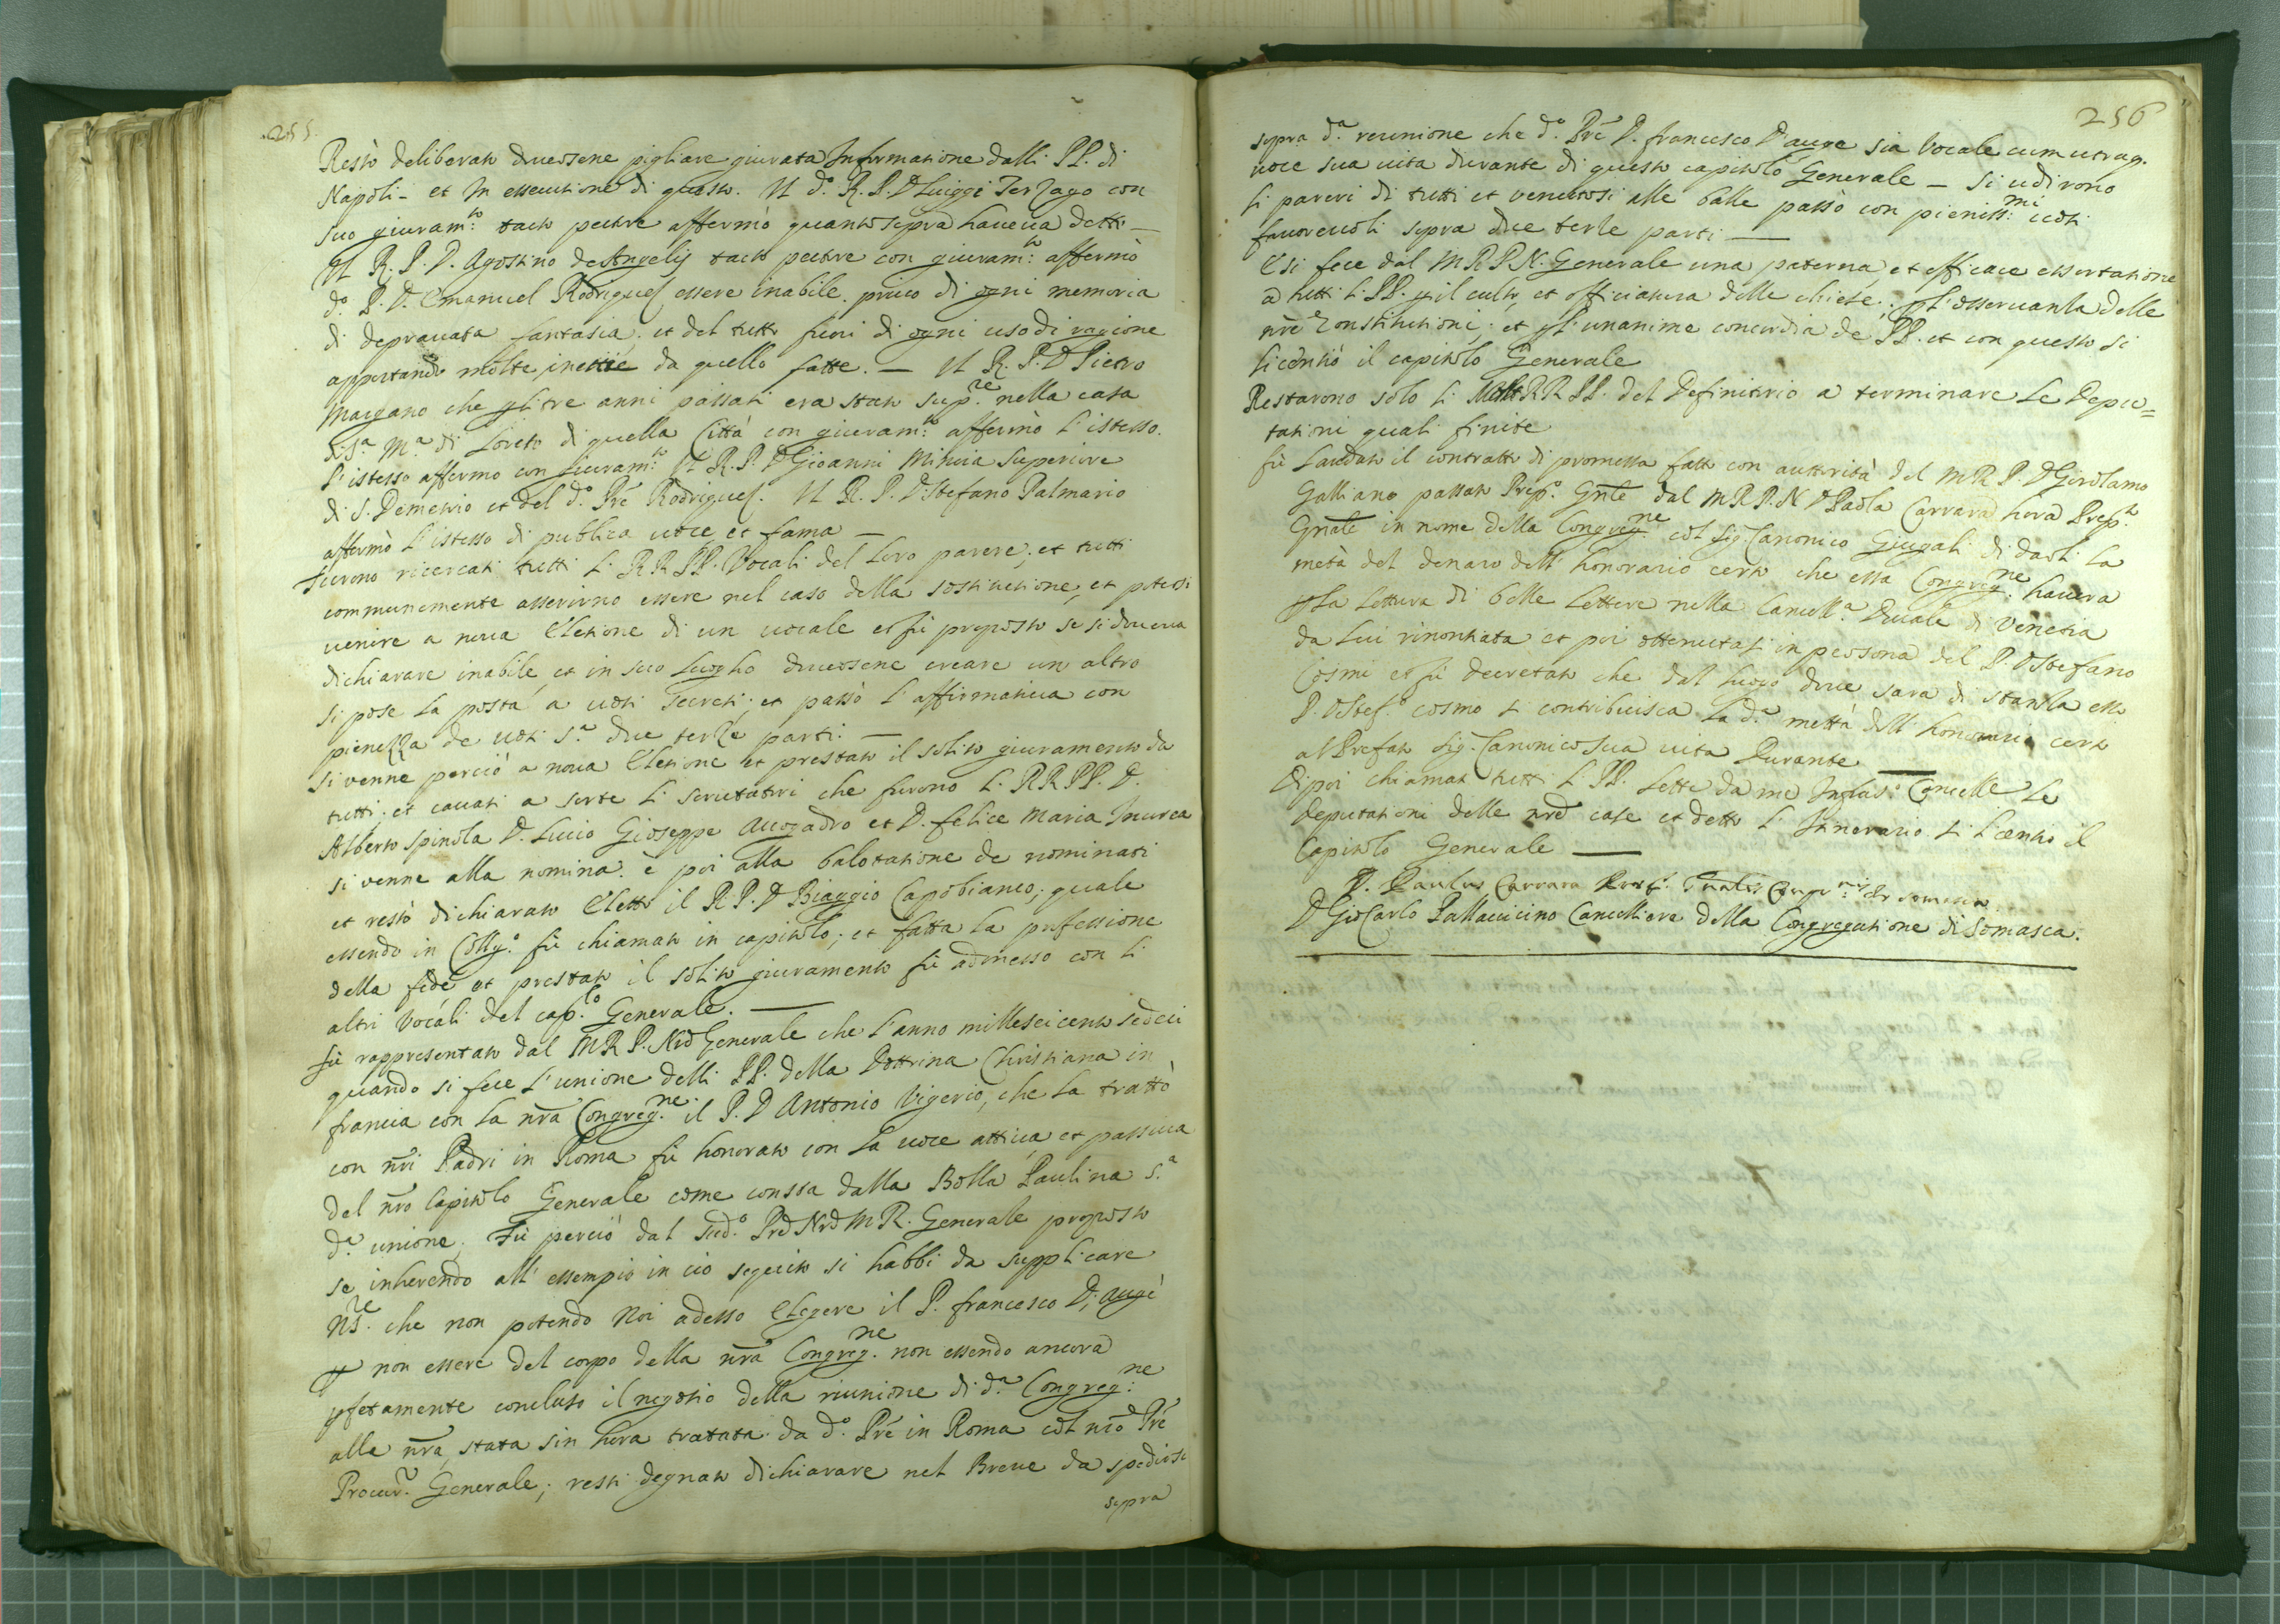 255.
Restò deliberato doversene pigliare giurata Informatione dalli PP. di
Napoli - et In essecutione di questo. Il d.º R. P. D Luiggi Terzago con
suo giuram.to tacto pectore affermò quanto sopra haveva detto —
Il R. P. D. Agostino de Angelis tacto pectore con giuram.to affermò
d.º P. D. Emanuel Rodriguez essere inabile. privo di ogni memoria
di depravata fantasia; et del tutto fuori di ogni uso di ragione
apportando molte inettie da quello fatte. — Il R. P. D Pietro
Maggano che p li tre anni passati era stato Sup.re nella casa
di S.ª M.ª di Loreto di quella Città con giuram.to affermò l'istesso.
l'istesso affermo con giuram.to Il R. P. D Gioanni Superiore
di S. Demetrio et del d.º Prê Rodriguez. Il R. P. D. Stefano Palmario
affermò l'istesso di publica voce, et fama —
Furono ricercati tutti li RR PP. Vocali del loro parere; et tutti
communemente asserirno essere nel caso della sostitutione, et potersi
venire a nova Eletione di un vocale et fù proposto se si doveva
dichiarare inabile, et in suo luogho doversene creare un altro
si pose la posta a voti secreti; et passò l'affirmativa con
pienezza de voti s.ª due terze parti. —
Si venne perciò a nova Eletione et prestato il solito giuramento da
tutti; et cavati a sorte li scrutatori che furono li RR PP. D.
Alberto Spinola D. Lucio Gioseppe Avogadro et D. Felice Maria Inurea
si venne alla nomina. è poi alla balotatione de nominati
et restò dichiarato Eletto il R. P. D Biaggio Capobianco; quale
essendo in Colleg.º fù chiamato in capitolo; et fatta la professione
della fede et prestato il solito giuramento fù admesso con li
altri Vocali del cap.lo Generale. —
Fù rappresentato dal M R P. Nrô Generale che l'anno milleseicento sedeci
quando si fece l'unione delli PP. della Dottrina Christiana in
francia con la nrâ Congreg.ne il P. D Antonio Vigerio, che la trattò
con nrî Padri in Roma fù honorato con la voce attiva, et passiva
del nrô Capitolo Generale come consta dalla Bolla Paulina s.ª
d.ª unione; Fù perciò dal sud.º Prê Nrô M R. Generale proposto
se inherendo all'essempio in ciò seguito si habbi da supplicare
N. S.re che non potendo Noi adesso Elegere il P. francesco D'Augè
p non essere del corpo della nrâ Congreg.ne non essendo ancora
pfetamente concluso il negotio della riunione di d.ª Congreg.ne
alla nrâ, stata sin hora tratata da d.º Prê in Roma col nrô Prê
Procur.r Generale; resti degnato dichiarare nel Breve da spedirsi
sopra
256
sopra d.ª reunione che d.º Prê D. francesco D'auge sia Vocale cum utraq.
voce sua vita durante di questo capitolo Generale — Si udirono
li pareri di tutti et venutosi alle balle passò con pieniss.mi voti
favorevoli sopra due terze parti —
E si fece dal M R P. N. Generale una paterna, et efficace essortatione
a tutti li PP. p il culto, et officiatura delle chiese; p l'osservanza delle
nrê Constitutioni; et p l'unanime concordia de PP. et con questo si
licentiò il capitolo Generale
Restarono solo li Molt RR PP. del Definitorio a terminare le Depu=
tationi quali finite
fù laudato il contratto di promessa fatto con auttorità del M R P. D Girolamo
Galliano passato Prep.º Gnlê dal M R P. N D Paolo Carrara hora Prep.to
Gnâle in nome della Congreg.ne col Sig. Canonico Giugali di darli la
metà del denaro dell' honorario certo che essa Congreg.ne havera
p la lettura di belle lettere nella Cancell.ª Ducale di Venetia
da lui rinontiata et poi ottenutasi in persona del P. D Stefano
Cosmi et fù decretato che dal luogo dove sara di stanza esso
P. D Stef.º Cosmo si contribuisca la d.ª mettà dell' honorario certo
al Prefato Sig. Canonico sua vita Durante —
Dipoi chiamati tutti li PP. lette da me Cancell.e le
deputationi delle nrê case et detto l' Itinerario si licentiò il
Capitolo Generale —
D. Paulus Carrara Congr.nis de Somasca
D Gio Carlo Pallavicino Cancelliere della Congregatione di Somasca.